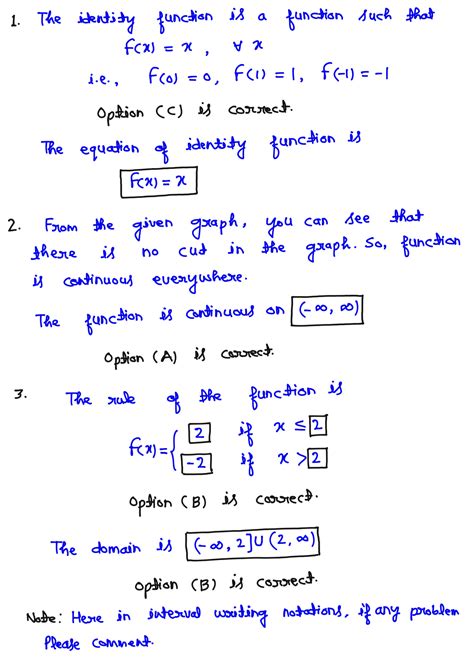 1. The identity function is a function such that
f(x) = x , ∀ x
i.e., f(0) = 0, f(1) = 1, f(-1) = -1
Option (C) is correct.
The equation of identity function is
f(x) = x
2. From the given graph, you can see that
there is no cut in the graph. So, function
is continuous everywhere.
The function is continuous on (-∞, ∞)
Option (A) is correct.
3. The rule of the function is
f(x) = { 2 if x ≤ 2
-2 if x > 2
Option (B) is correct.
The domain is (-∞, 2] U (2, ∞)
Option (B) is correct.
Note: Here in interval writing notations, if any problem
Please comment.